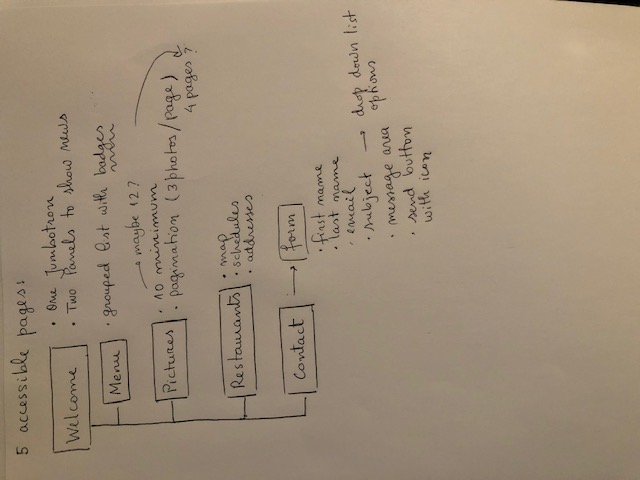 5 accessible pages:
Welcome
• One Jumbotron
• Two Panels to show news
Menu
• grouped list with badges
→ maybe 12?
Pictures
• 10 minimum
• pagination (3 photos/page)
4 pages?
Restaurants
• map
• schedules
• addresses
Contact → form
• first name
• last name
• email
• subject → drop down list
options
• message area
• send button
with icon